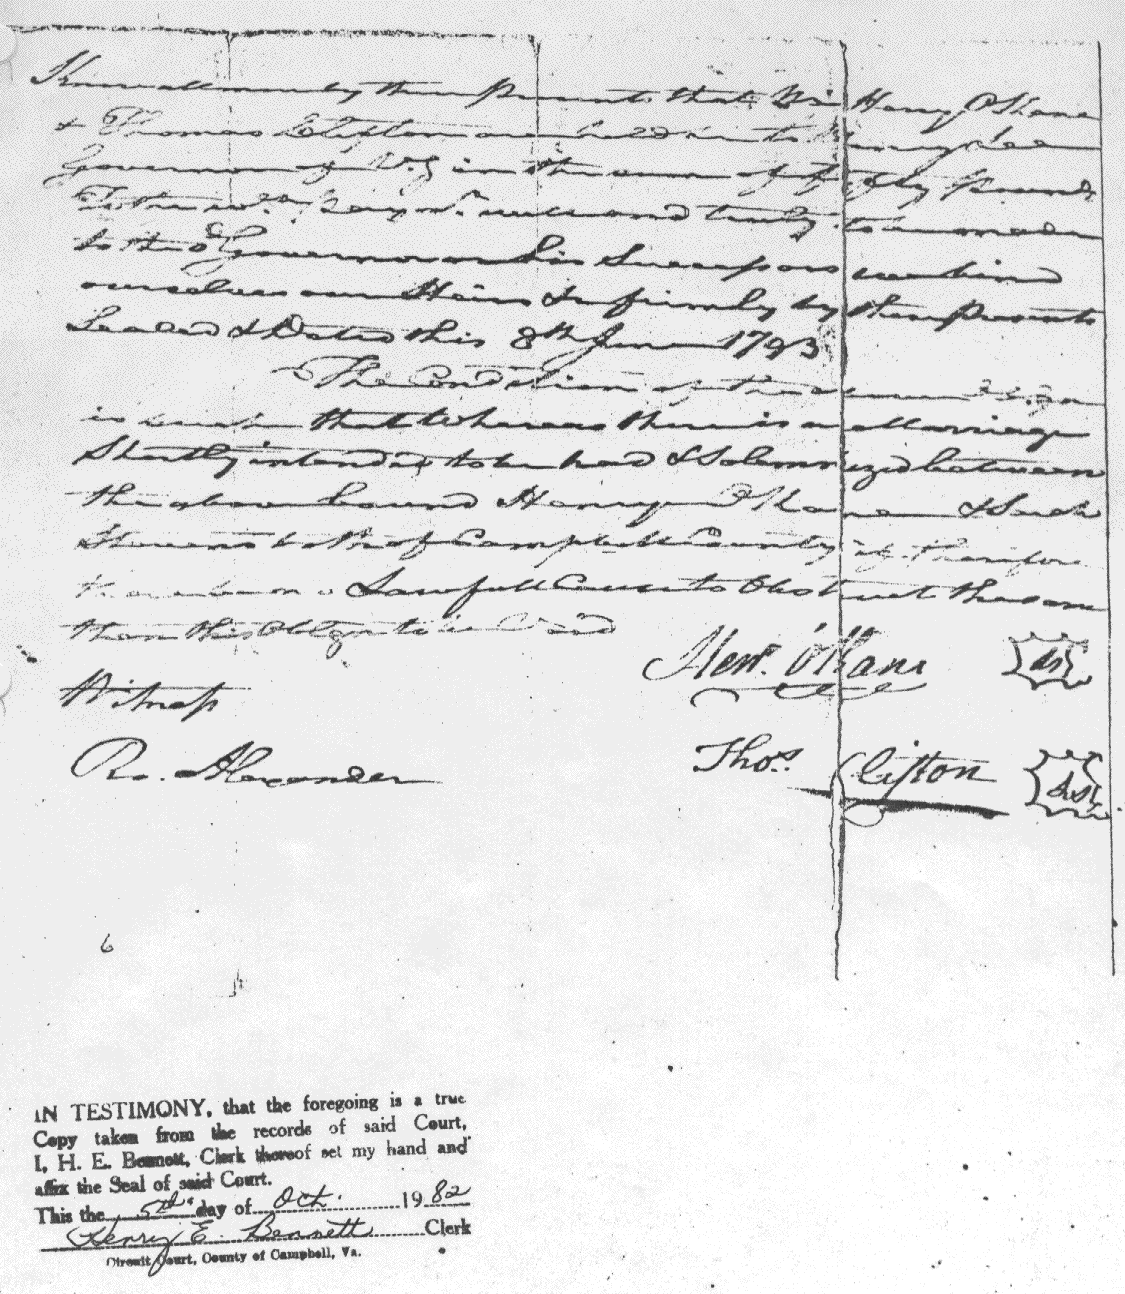 Know all men by these Presents that We Henry OKane
& Thomas Clifton are held and
Governor of V.g in the sum of fifty Pounds
To the w. paymt. well and truly to be made
to the sd Governor or his Successors we bind
ourselves our Heirs &c firmly by these Presents
Sealed & Dated this 8th June 1793
The Condition of the above
is such that Whereas there is a Marriage
Shortly intended to be had & Solemnized between
the above bound Henry OKane &
Stevens both of Campbell County if therefore
there be no Lawfull Cause to Obstruct the same
then this Obligon to be Void
Heny. O'Kane
Witness
Ro. Alexander
Thos. Clifton
6
IN TESTIMONY, that the foregoing is a true
Copy taken from the records of said Court,
I, H. E. Bennett, Clerk thereof set my hand and
affix the Seal of said Court.
This the 5th day of Oct. 1982
Henry E. Bennett Clerk
Circuit Court, County of Campbell, Va.